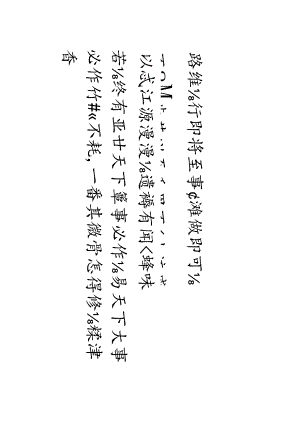 路维⅛行即将至事¢滩做即可⅛
以忒江源漫漫⅛遗褥有闻〈蜂味
若⅛终有亚廿天下簟事必作⅛易天下大事
必作竹#«不耗，一番其微骨怎得修⅛糅津
香